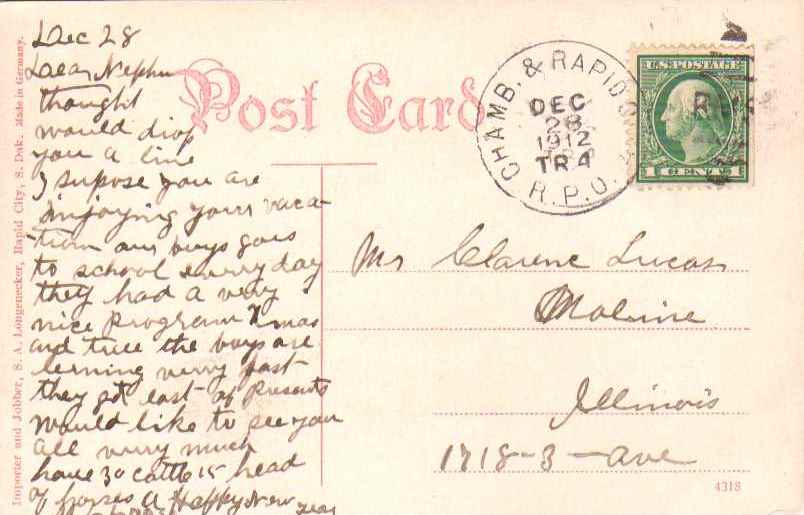 Post Card
Dec 28
Dear Nephu
thought
would drop
you a line
I supose you are
injoying your vaca-
tion our boys goes
to school evrry day
they had a very
nice program Xmas
and tree the boys are
lerning verry fast
they got lost of Presents
would like to see you
all verry much
have 30 cattle 15 head
of horses A Happy New year
CHAMB. & RAPID
DEC
28
1912
TR4
R.P.O.
U.S. POSTAGE
1 CENT 1
Mr Clarence Lucas
Moline
Illinois
1718-3-ave
4318
Importer and Jobber, S. A. Longenecker, Rapid City, S. Dak. Made in Germany.